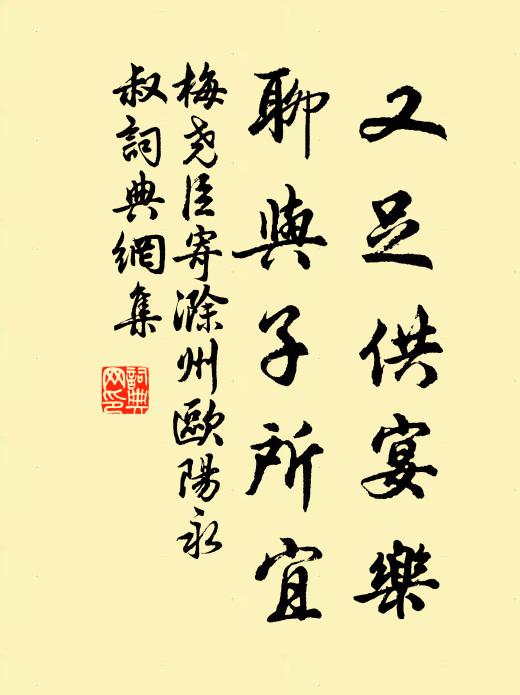 又足供宴樂
聊與子所宜
梅尧臣寄滁州歐陽永
叔詞典網集
詞典网印